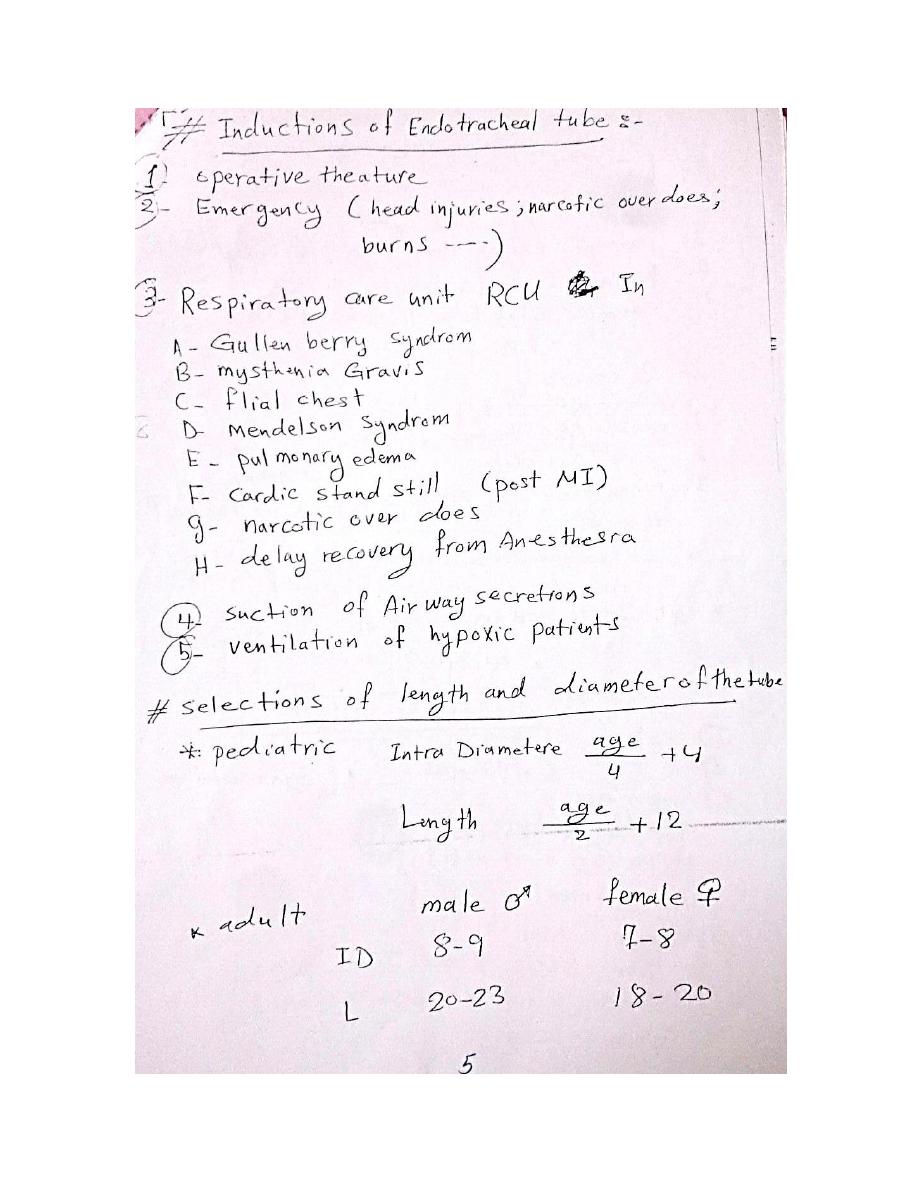 # Inductions of Endotracheal tube :-
1- operative theature
2- Emergency (head injuries; narcotic over does;
burns ----)
3- Respiratory care unit RCU In
A- Gullen berry syndrom
B- mysthenia Gravis
C- flial chest
D- Mendelson Syndrom
E- pulmonary edema
F- Cardic stand still (post MI)
g- narcotic over does
H- delay recovery from Anesthesra
4- suction of Air way secretions
5- ventilation of hypoxic patients
# Selections of length and diameter of the tube
* pediatric Intra Diametere age/4 +4
Length age/2 +12
* adult male ♂ female ♀
ID 8-9 7-8
L 20-23 18-20
5